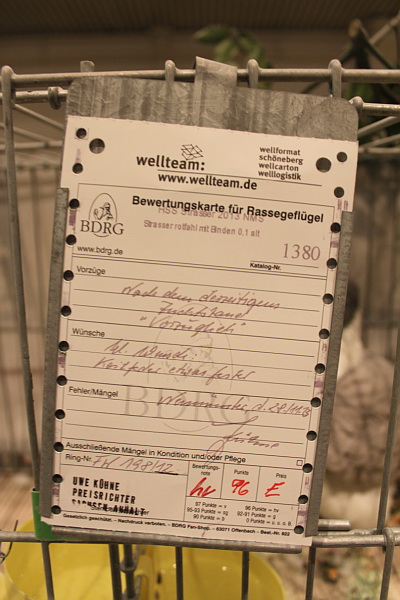 wellteam:
www.wellteam.de
wellformat
schöneberg
wellcarton
welllogistik
Bewertungskarte für Rassegeflügel
HSS Strasser 2013 NMS
Strasser rotfahl mit Binden 0,1 alt
BDRG
www.bdrg.de
1380
Katalog-Nr.
Vorzüge
Nach dem derzeitigen
"Vorzüglich"
Wünsche
BDRG
Fehler/Mängel
Ausschließende Mängel in Kondition und/oder Pflege
Ring-Nr.
UWE KÜHNE
PREISRICHTER
SACHSEN-ANHALT
Bewertungs-
note
Punkte
Preis
hv
96
E
97 Punkte = v
95-93 Punkte = sg
90 Punkte = b
96 Punkte = hv
92-91 Punkte = g
0 Punkte = u. o. B.
Gesetzlich geschützt. - Nachdruck verboten. - BDRG Fan-Shop. - 63071 Offenbach - Best.-Nr. 922